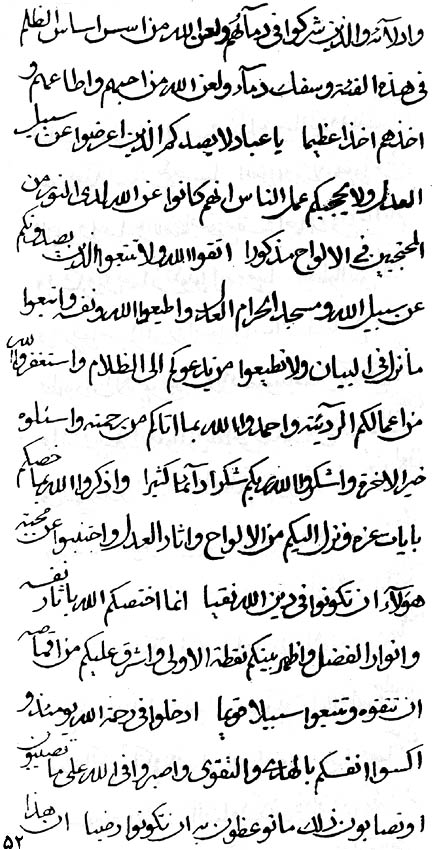 واولآئه والذین شرکوا فی دمآئهم ولعن الله من اسس اساس الظلم
فی هذه الفئة وسفک دمآء ولعن الله من احبهم واطاعهم و
اخذهم اخذا عظیما یا عباد لا یصدکم الذین اعرضوا عن سبیل
العدل ولا یحجبکم عمل الناس انهم کانوا عن الله لدی النور من
المحتجبین فی الالواح مذکورا اتقوا الله ولا تتبعوا الذین یصدونکم
عن سبیل الله ومسجد الحرام العدل واطیعوا الله ونفسه واتبعوا
ما نزل فی البیان ولا تطیعوا من یدعوکم الی الظلام واستغفروا الله
من اعمالکم الردیئة واحمدوا الله بما اتاکم من رحمته واسئلوه
خیر الاخرة واشکروا الله ربکم شکرا دآئما کثیرا واذکروا الله بما خصکم
بایات عزه ونزل الیکم من الالواح واثار العدل واجتنبوا عن محبة
هؤلآء ان تکونوا فی دین الله نقیا انما اختصکم الله باثار نفسه
وانوار الفضل واظهر بینکم نقطة الاولی واشرق علیکم من اقماصه
ان تتقوه وتتبعوا سبیلا قویما ادخلوا فی رحمة الله یومئذ و
اکسوا انفسکم بالهدی والتقوی واصبروا فی الله علی ما تصلیون
او تصابون ذلک ما توعظون به ان تکونوا رضیا ان هذا
۵۲